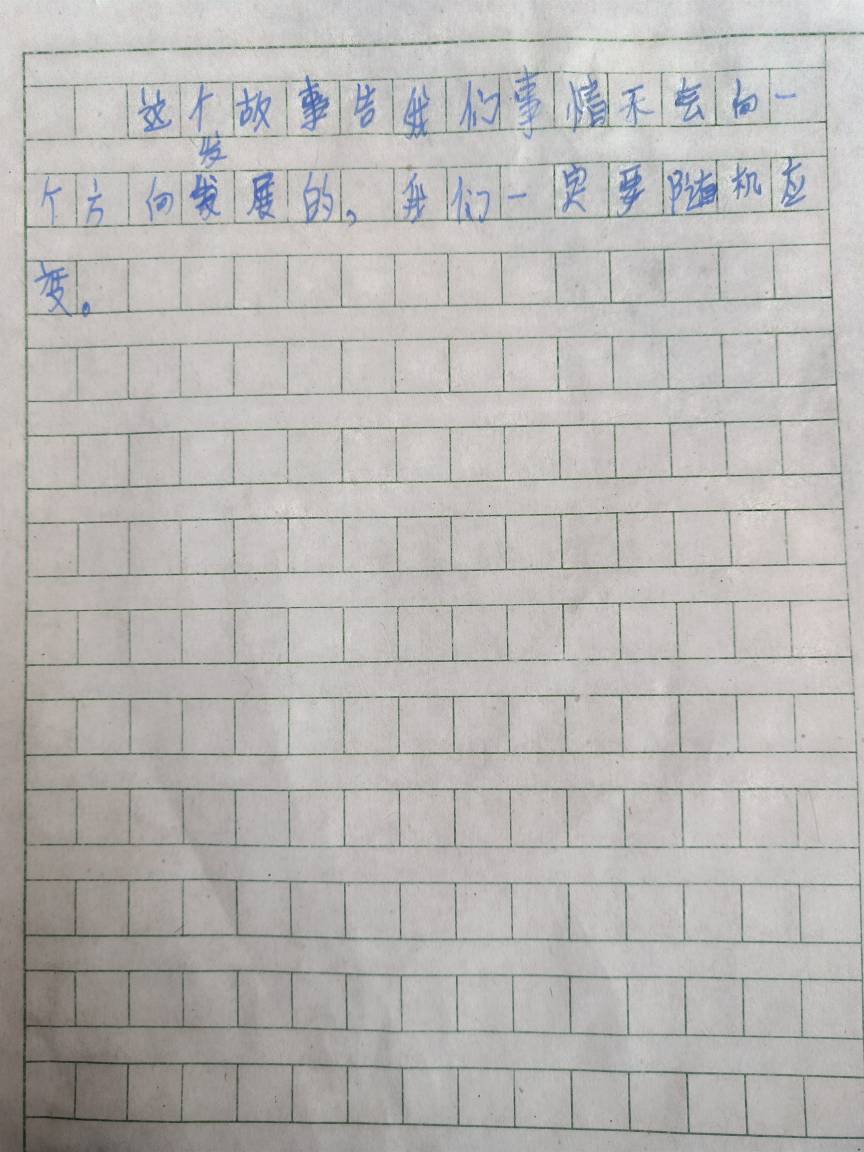 这个故事告我们事情不会向一
发
个方向发展的，我们一定要随机应
变。